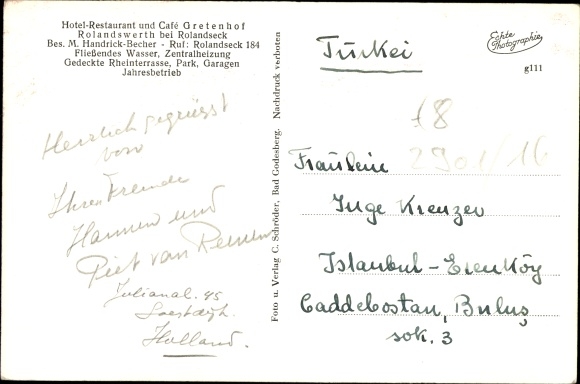 Hotel-Restaurant und Café Gretenhof
Rolandswerth bei Rolandseck
Bes. M. Handrick-Becher - Ruf: Rolandseck 184
Fließendes Wasser, Zentralheizung
Gedeckte Rheinterrasse, Park, Garagen
Jahresbetrieb
Herzlich gegrüsst
von
Ihren Freunde
Hannen und
Piet van
Julianal. 45
Soestdijk.
Holland.
Foto u. Verlag C. Schröder, Bad Godesberg. Nachdruck verboten
Türkei
Echte
Photographie
g111
£8
2901/16
Fräulein
Inge Krenzer
Istanbul - Erenköy
Caddebostan, Buluş
sok. 3